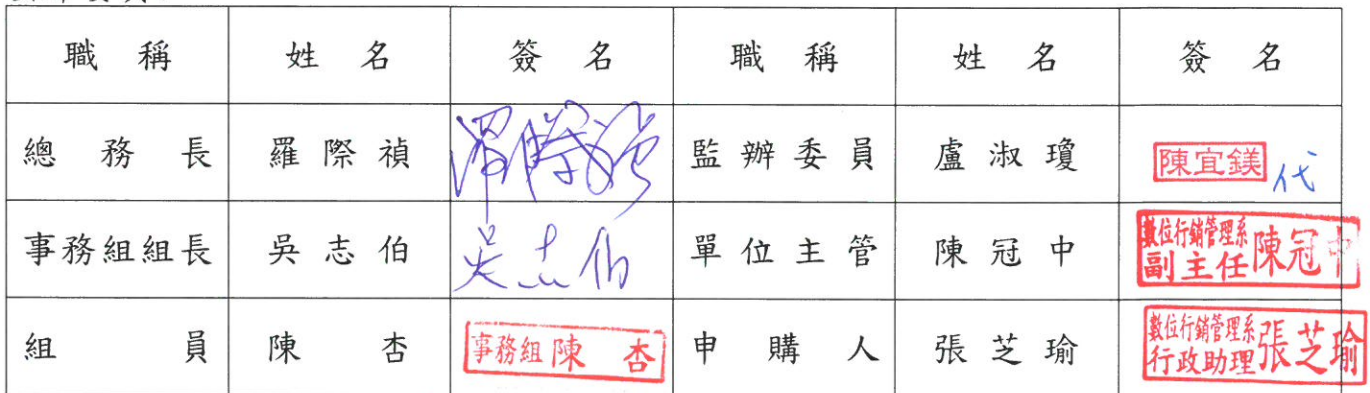 職稱 姓名 簽名 職稱 姓名 簽名
總務長 羅際禎 羅際禎 監辦委員 盧淑瓊 陳宜鎂 代
事務組組長 吳志伯 吳志伯 單位主管 陳冠中 數位行銷管理系 副主任 陳冠中
組員 陳杏 事務組 陳杏 申購人 張芝瑜 數位行銷管理系 行政助理 張芝瑜